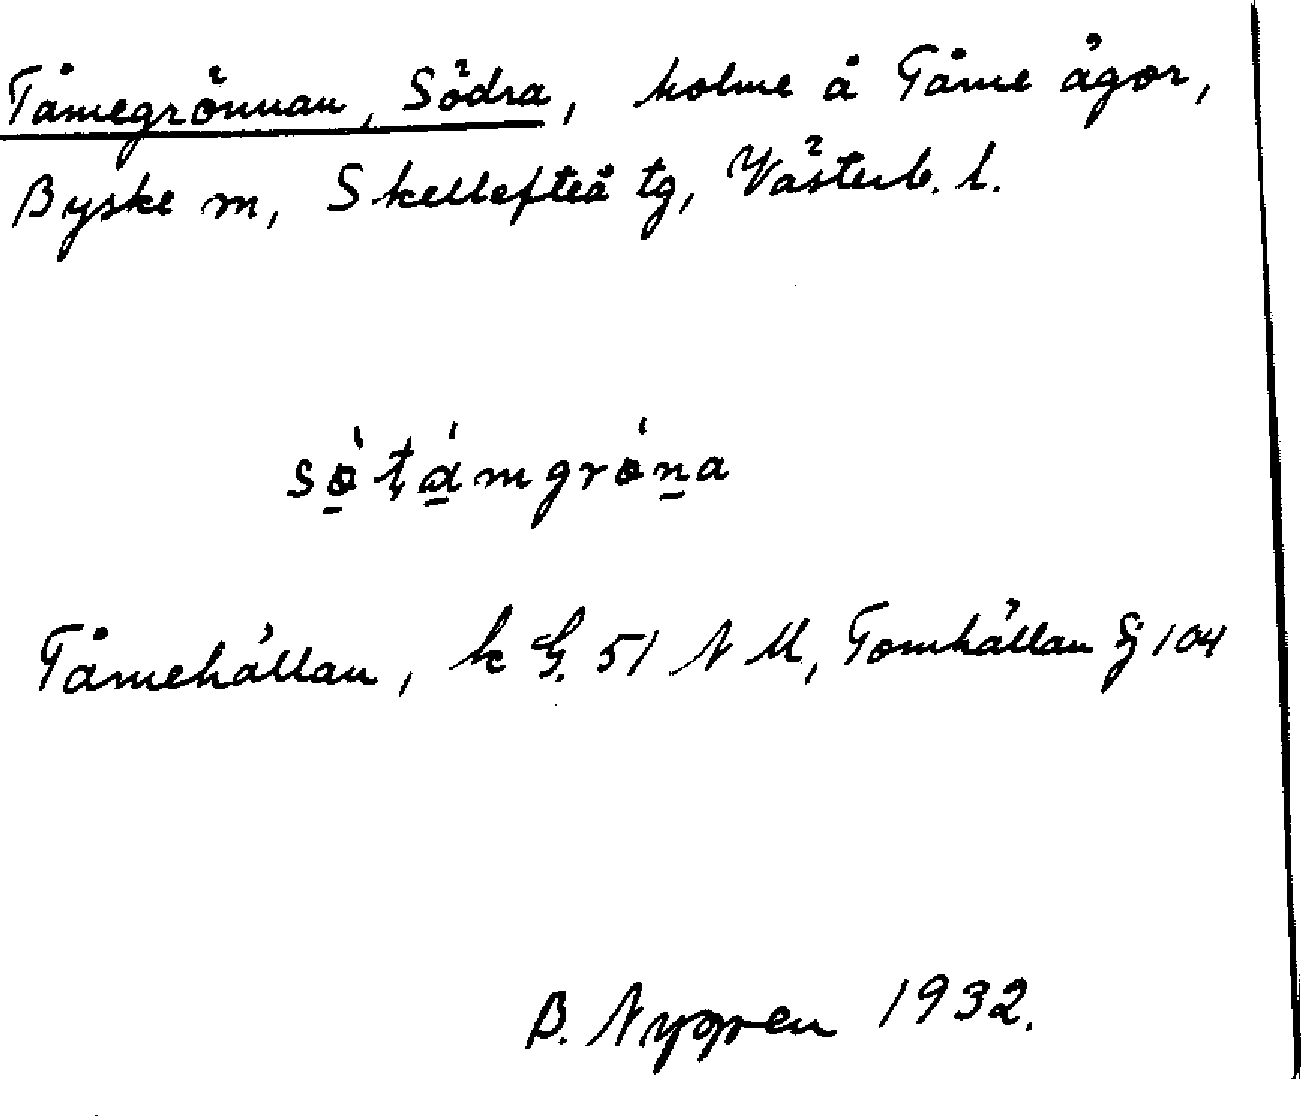 Tåmegrönnan, Södra, holme å Tåme ägor,
Byske sn, Skellefteå tg, Västerb. l.
sö̀ tåmgröna
Tåmehällan, k G. 51 N M, Tomhällan Sj 104
B. Nygren 1932.